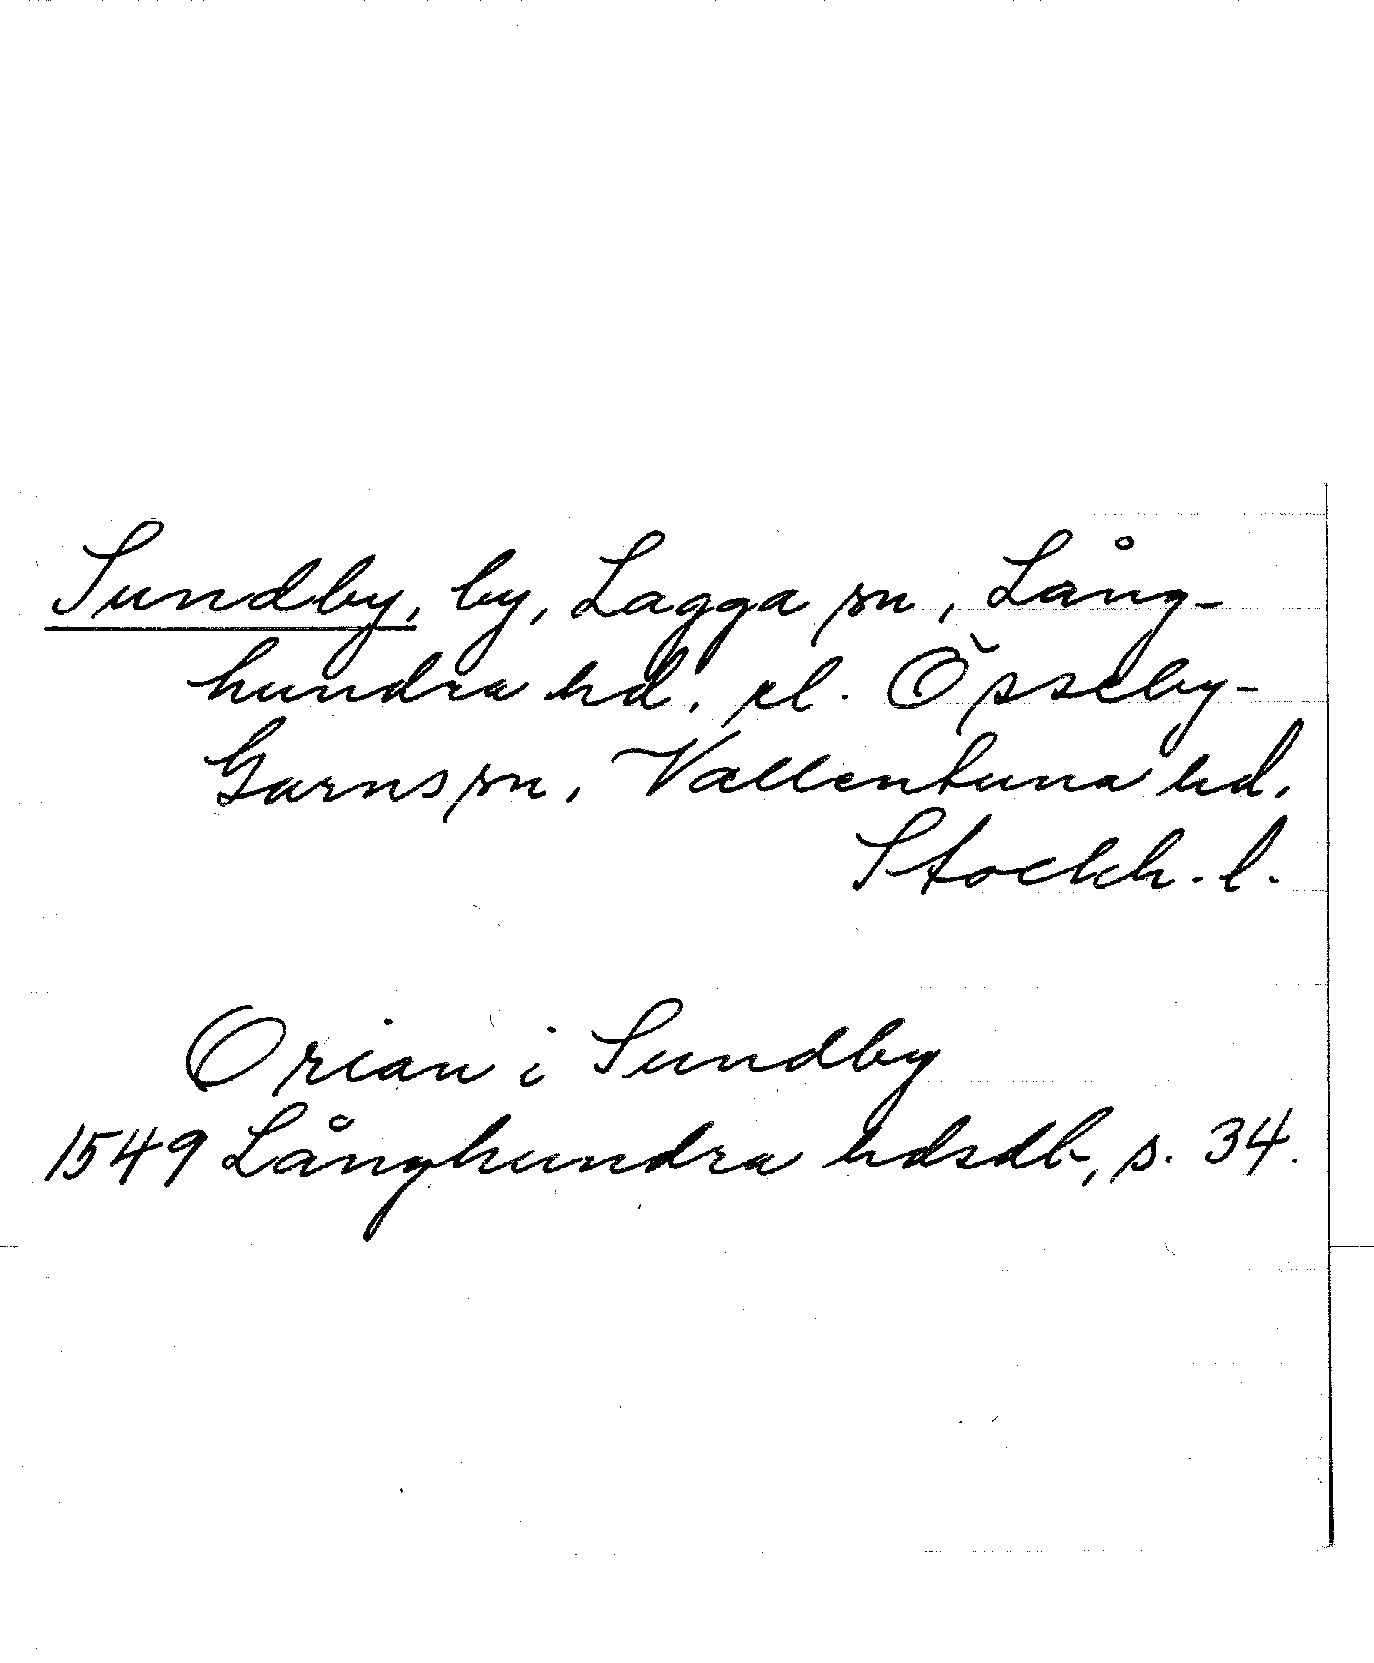 Sundby, by, Lagga sn, Lång-
hundra hd. el. Össeby-
Garns sn, Vallentuna hd.
Stockh. l.
Orian i Sundby
1549 Långhundra hdsdb, s. 34.